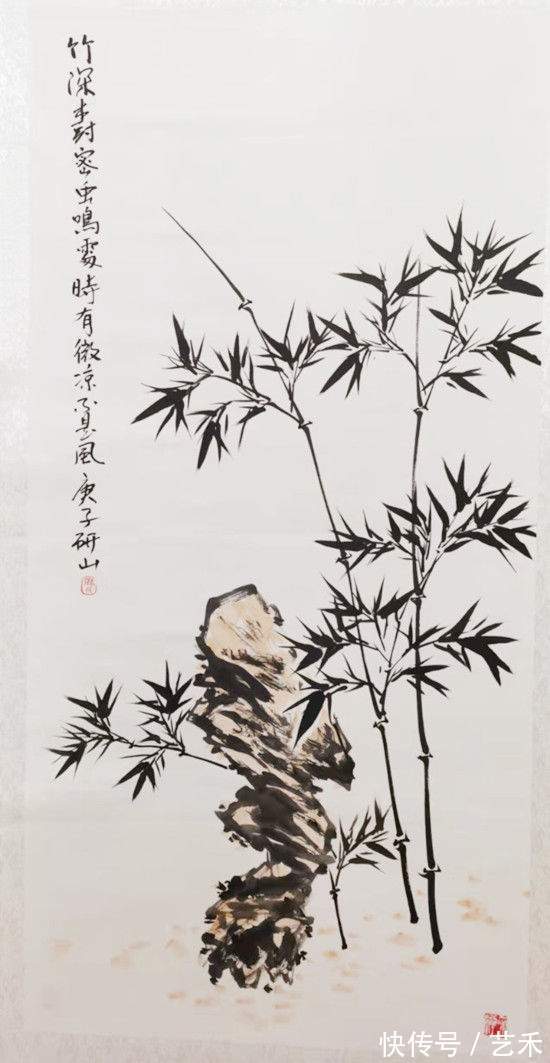 竹深封密虫鳴處時有微凉不是風庚子研山
快传号/艺禾